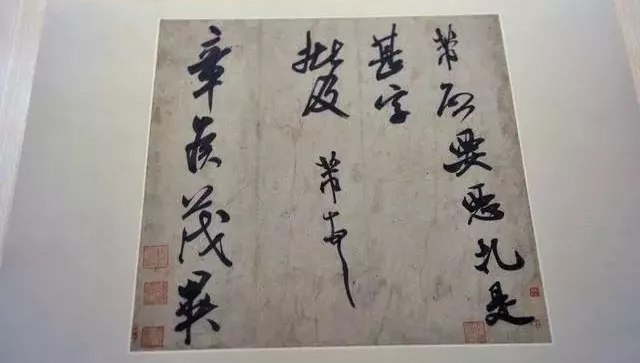 芾所要惡札是
甚字
批及 芾頓首
章侯茂異